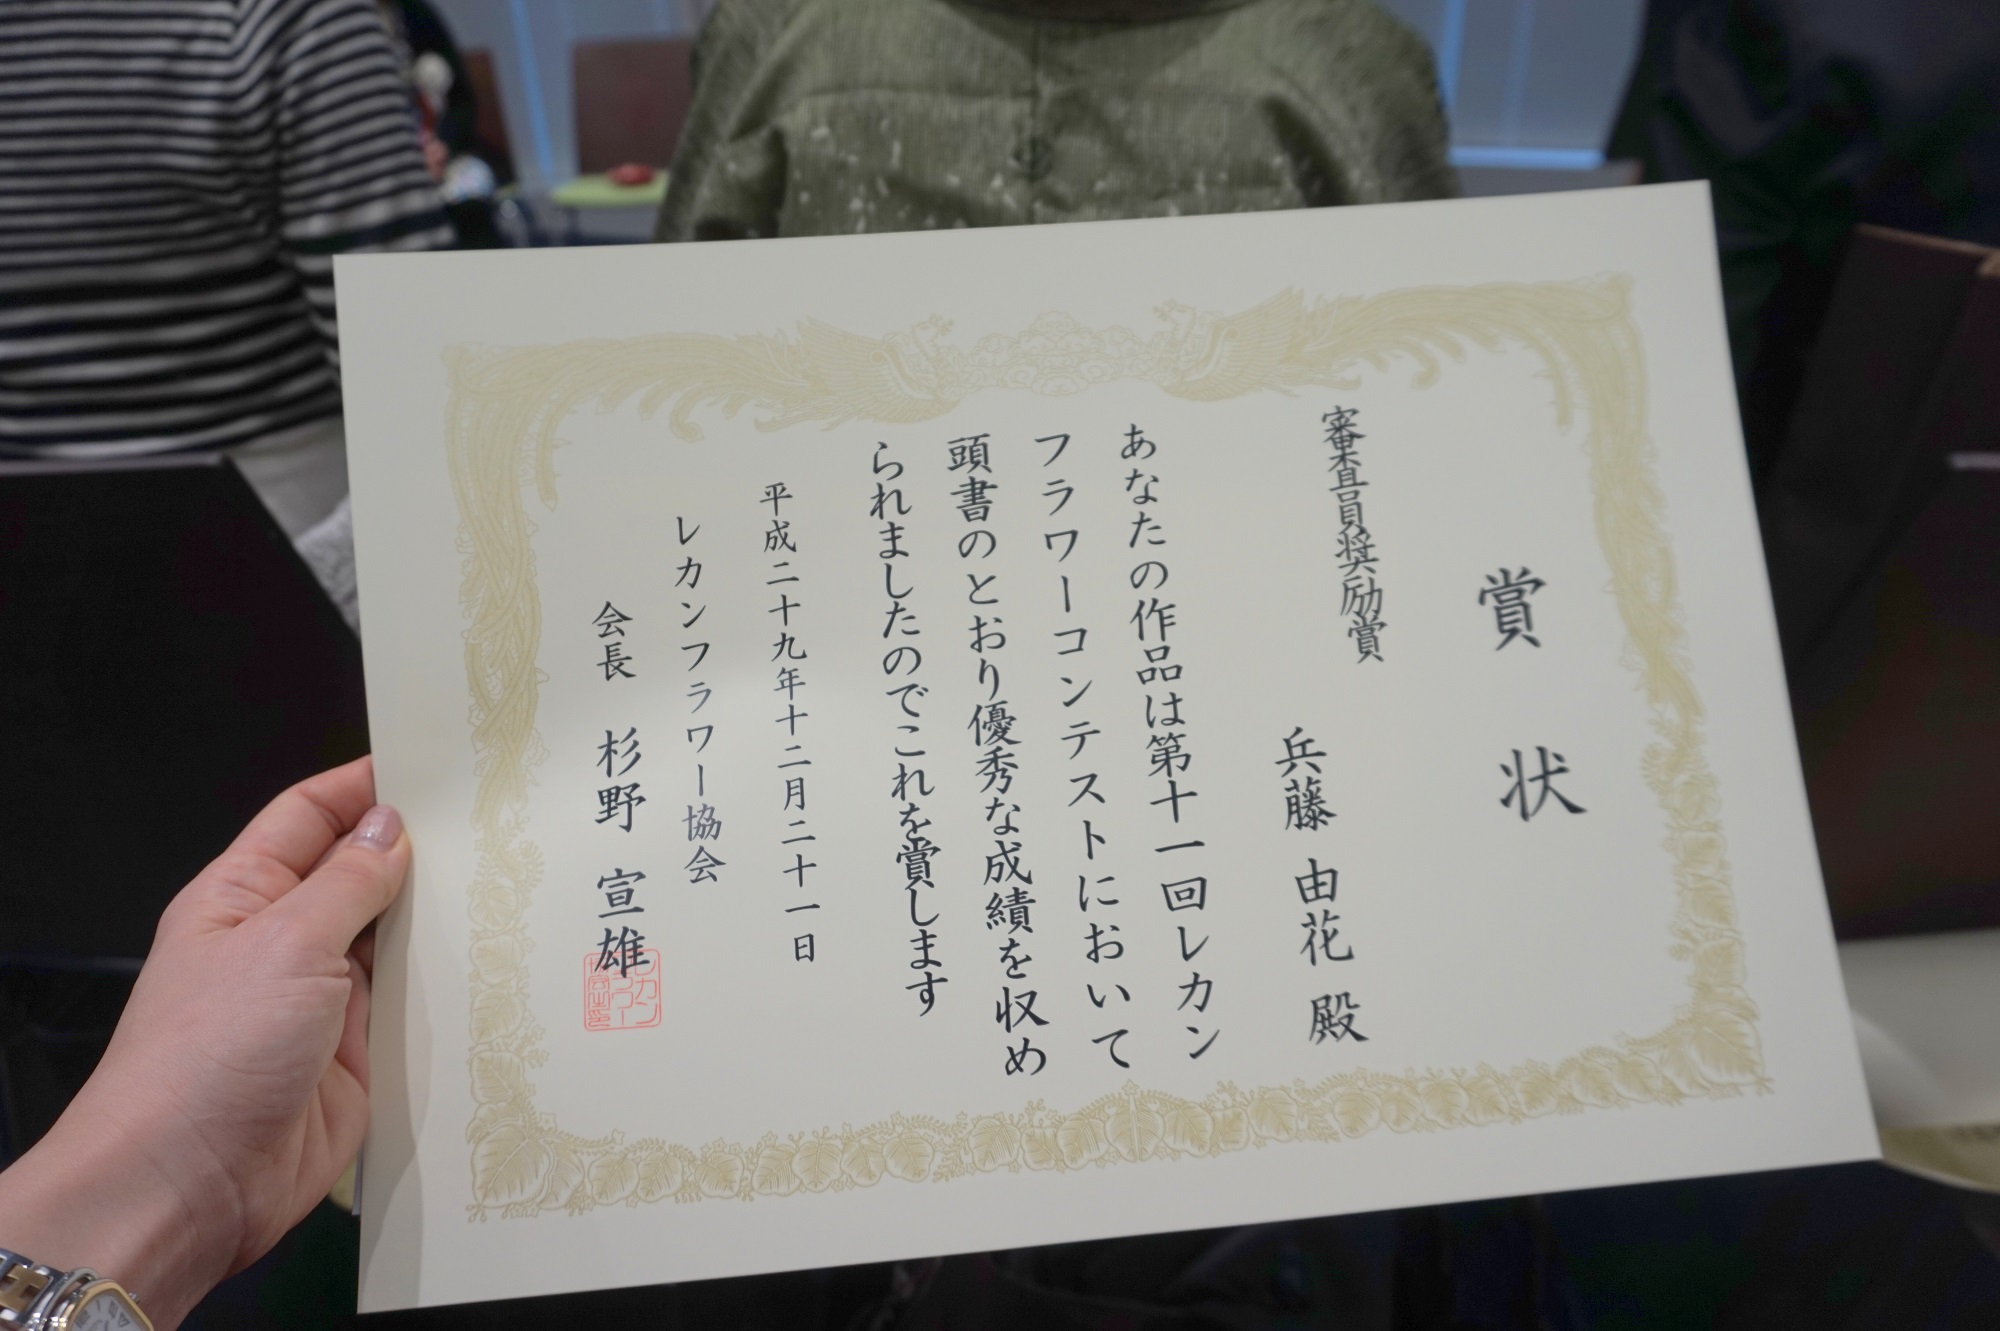 賞状
審査員奨励賞
兵藤 由花 殿
あなたの作品は第十一回レカン
フラワーコンテストにおいて
頭書のとおり優秀な成績を収め
られましたのでこれを賞します
平成二十九年十二月二十一日
レカンフラワー協会
会長 杉野 宣雄